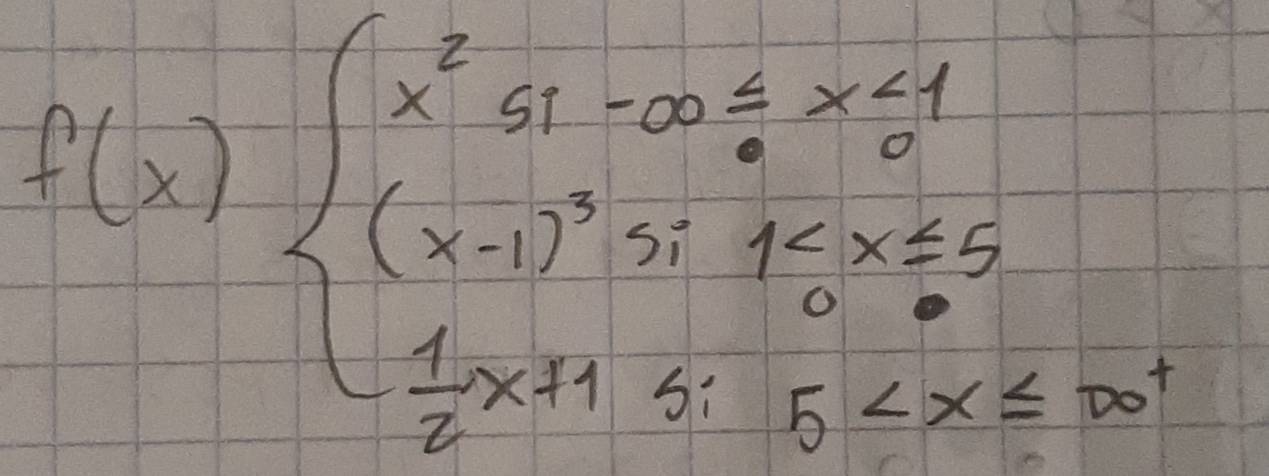 f(x) { x² si -∞ ≤ x < 1
(x-1)³ si 1 < x ≤ 5
1/2 x+1 si 5 < x ≤ ∞⁺